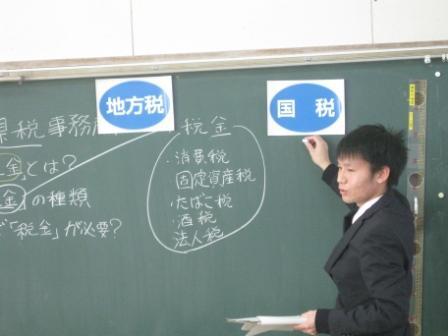 地方税
国税
県税事務所
税金
金とは?
・消費税
固定資産税
金の種類
・たばこ税
・酒税
「税金」が必要?
法人税